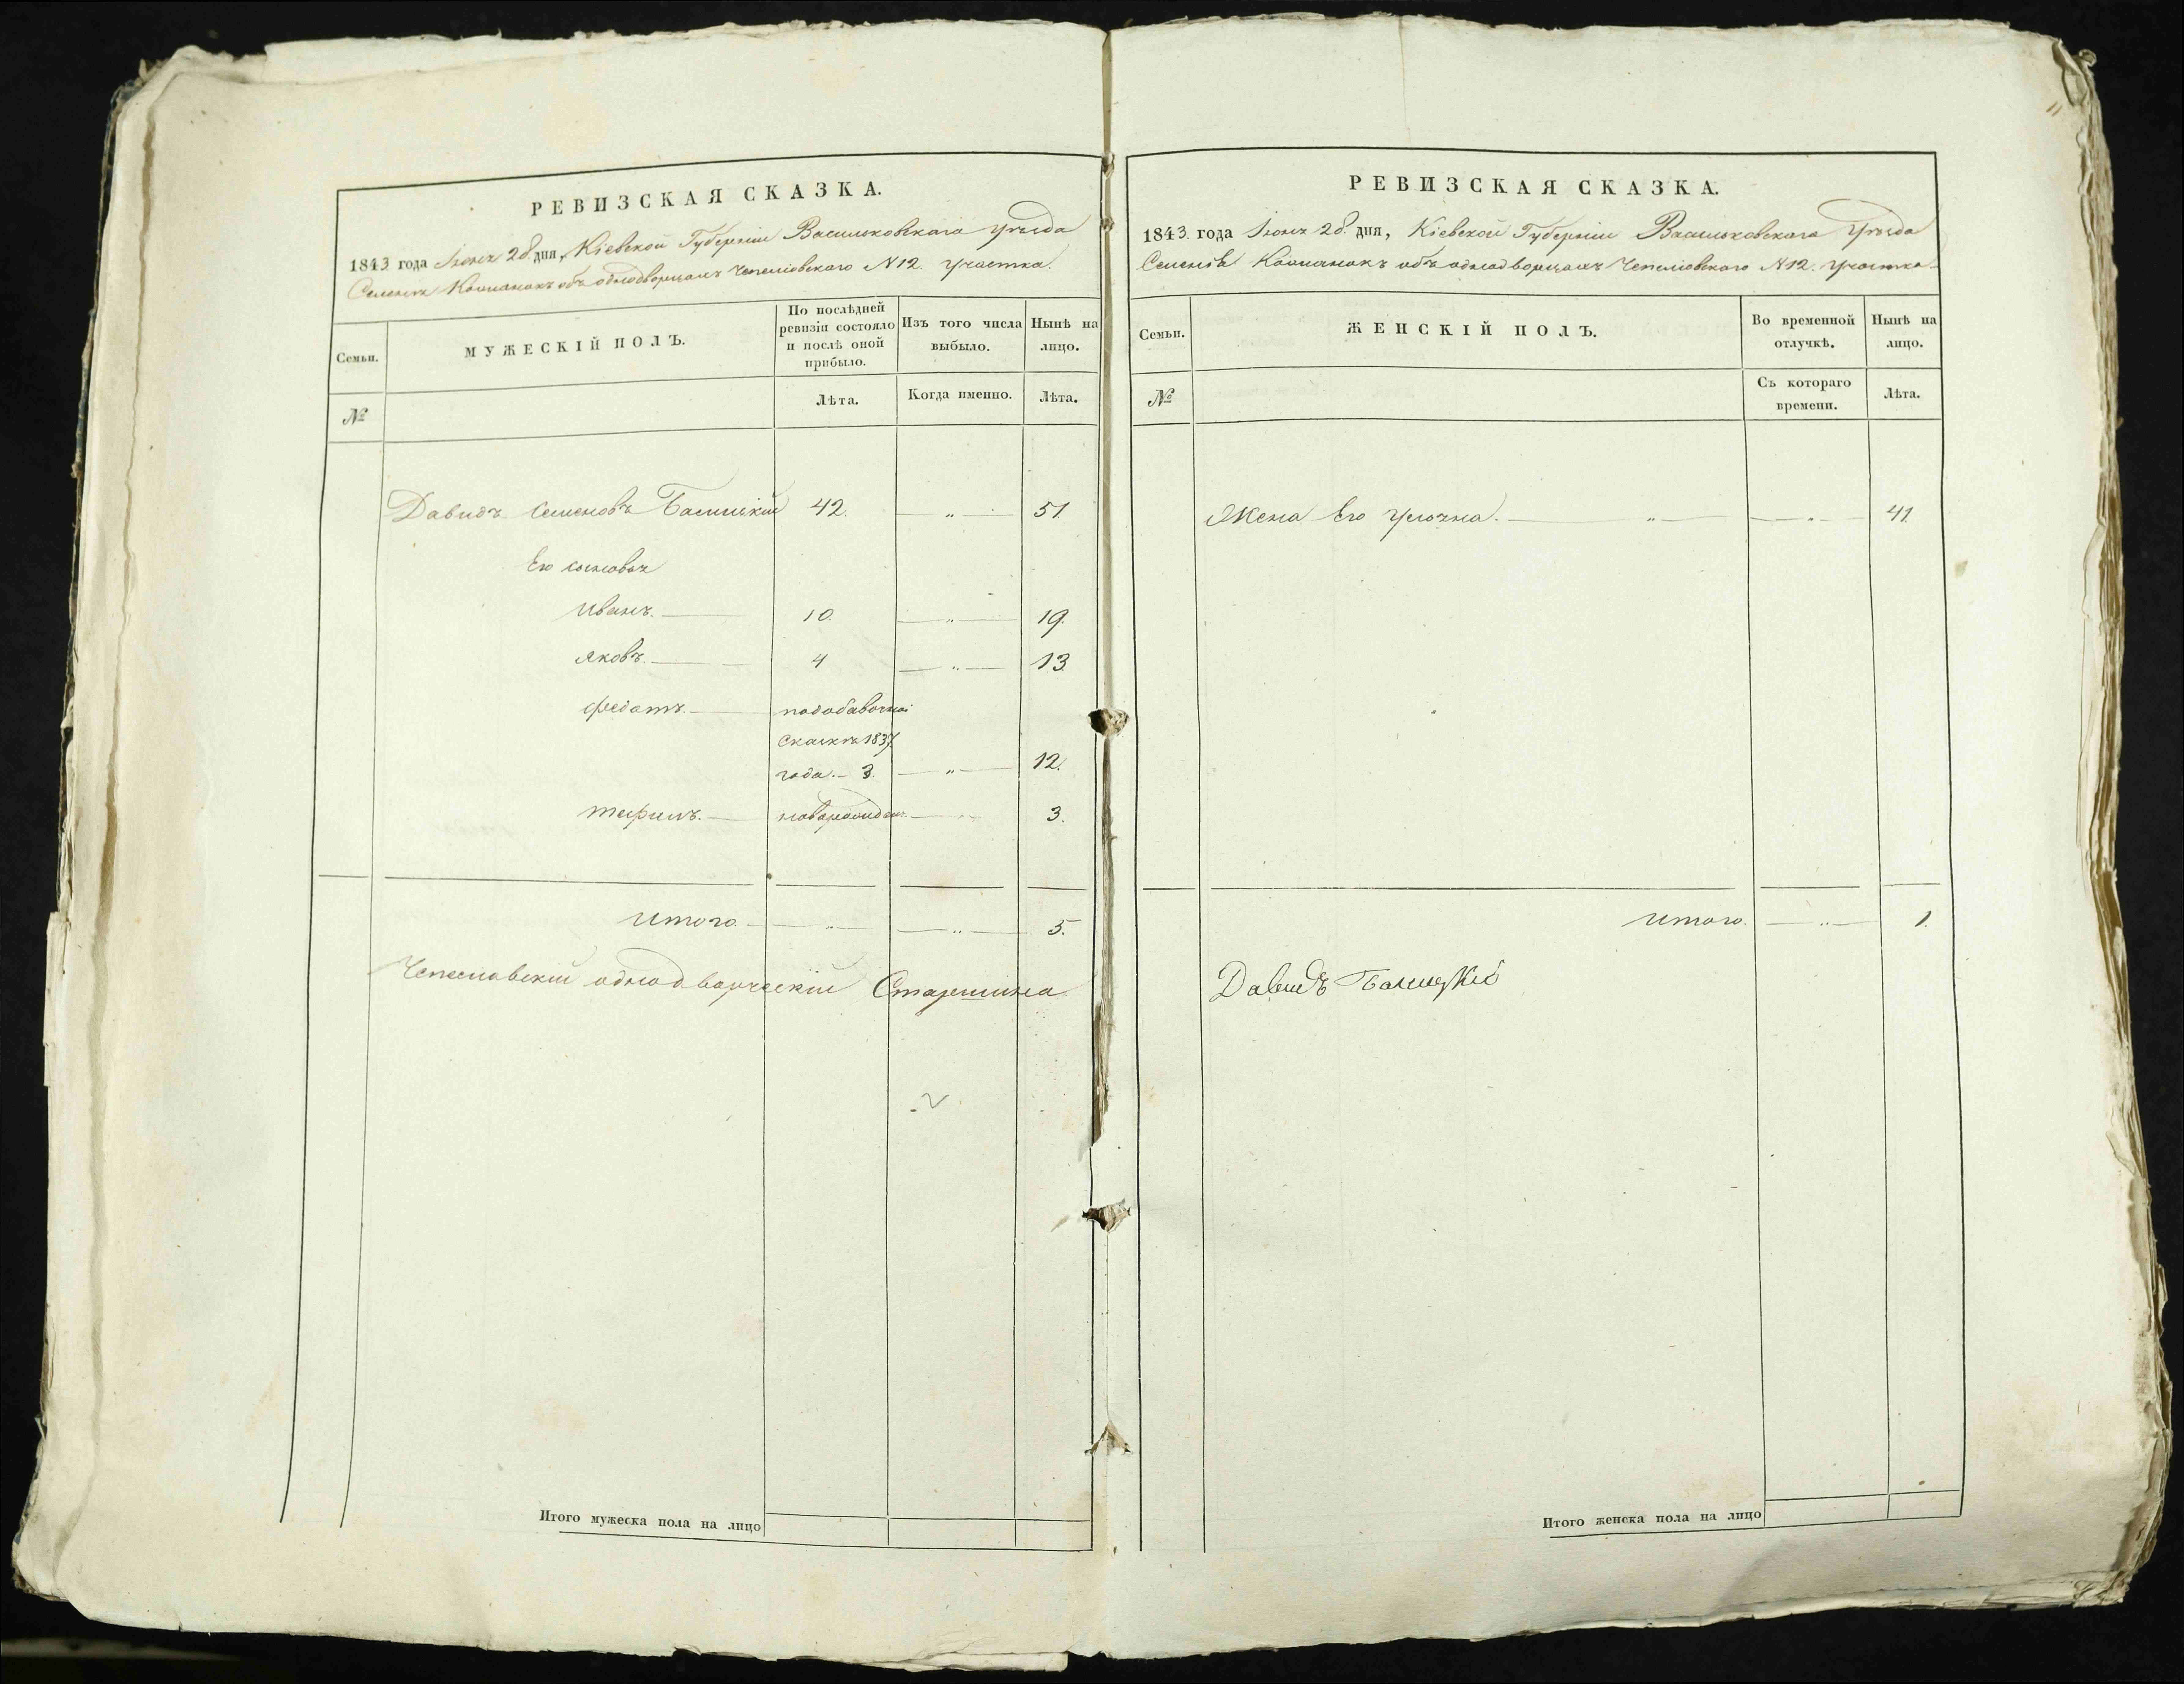 РЕВИЗСКАЯ СКАЗКА.
1843 года Іюня 28. дня, Кіевской Губерніи Васильковскаго Уѣзда
Селенія об однодворцахъ Чепелювскаго N 12. участка.
Семьи.
МУЖЕСКІЙ ПОЛЪ.
По послѣдней ревизіи состояло и послѣ оной прибыло.
Изъ того числа выбыло.
Нынѣ на лицо.
№
Лѣта.
Когда именно.
Лѣта.
Давидъ Семеновъ Балицкій 42. — „ — 51.
Его сыновья
Иванъ. — 10. — „ — 19.
Яковъ. — 4 — „ — 13
Федотъ. — подобавочной
сказкѣ 1837
года. — 3. — „ — 12.
— новорожден. — 3.
Итого. — „ — — „ — 5.
Однодворческій Старшина
Итого мужеска пола на лицо
"
РЕВИЗСКАЯ СКАЗКА.
1843. года Іюня 28. дня, Кіевской Губерніи Васильковскаго Уѣзда
Селенія объ однодворцахъ Чепелювскаго N 12. участка.
Семьи.
ЖЕНСКІЙ ПОЛЪ.
Во временной отлучкѣ.
Нынѣ на лицо.
№
Съ котораго времени.
Лѣта.
Жена Его — „ — — „ — 41.
Итого. — „ — 1.
Давидъ Балицкій
Итого женска пола на лицо